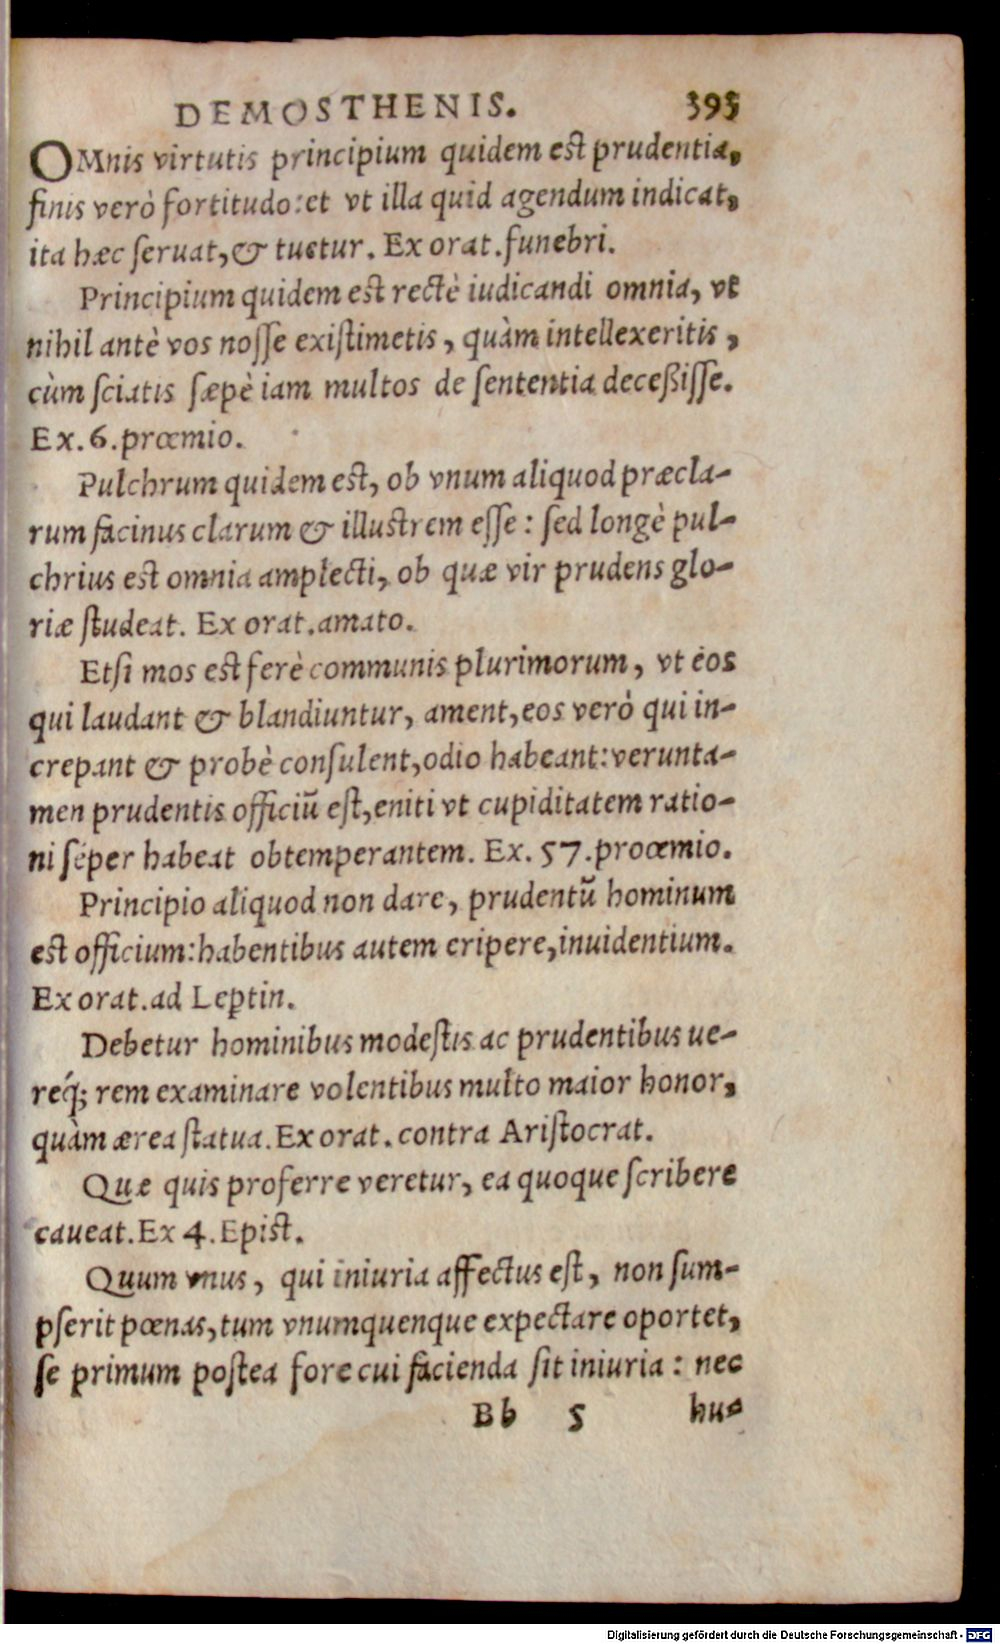 DEMOSTHENIS. 395
OMnis virtutis principium quidem est prudentia,
finis verò fortitudo: et vt illa quid agendum indicat,
ita hæc seruat, & tuetur. Ex orat. funebri.
Principium quidem est rectè iudicandi omnia, vt
nihil antè vos nosse existimetis, quàm intellexeritis,
cùm sciatis sæpè iam multos de sententia deceßisse.
Ex. 6. proœmio.
Pulchrum quidem est, ob vnum aliquod præcla-
rum facinus clarum & illustrem esse: sed longè pul-
chrius est omnia amplecti, ob quæ vir prudens glo-
riæ studeat. Ex orat. amato.
Etsi mos est ferè communis plurimorum, vt eos
qui laudant & blandiuntur, ament, eos verò qui in-
crepant & probè consulent, odio habeant: verunta-
men prudentis officiũ est, eniti vt cupiditatem ratio-
ni sẽper habeat obtemperantem. Ex. 57. proœmio.
Principio aliquod non dare, prudentũ hominum
est officium: habentibus autem eripere, inuidentium.
Ex orat. ad Leptin.
Debetur hominibus modestis ac prudentibus ue-
req́; rem examinare volentibus multo maior honor,
quàm ærea statua. Ex orat. contra Aristocrat.
Quæ quis proferre veretur, ea quoque scribere
caueat. Ex 4. Epist.
Quum vnus, qui iniuria affectus est, non sum-
pserit pœnas, tum vnumquenque expectare oportet,
se primum postea fore cui facienda sit iniuria: nec
Bb 5 hu-
Digitalisierung gefördert durch die Deutsche Forschungsgemeinschaft - DFG